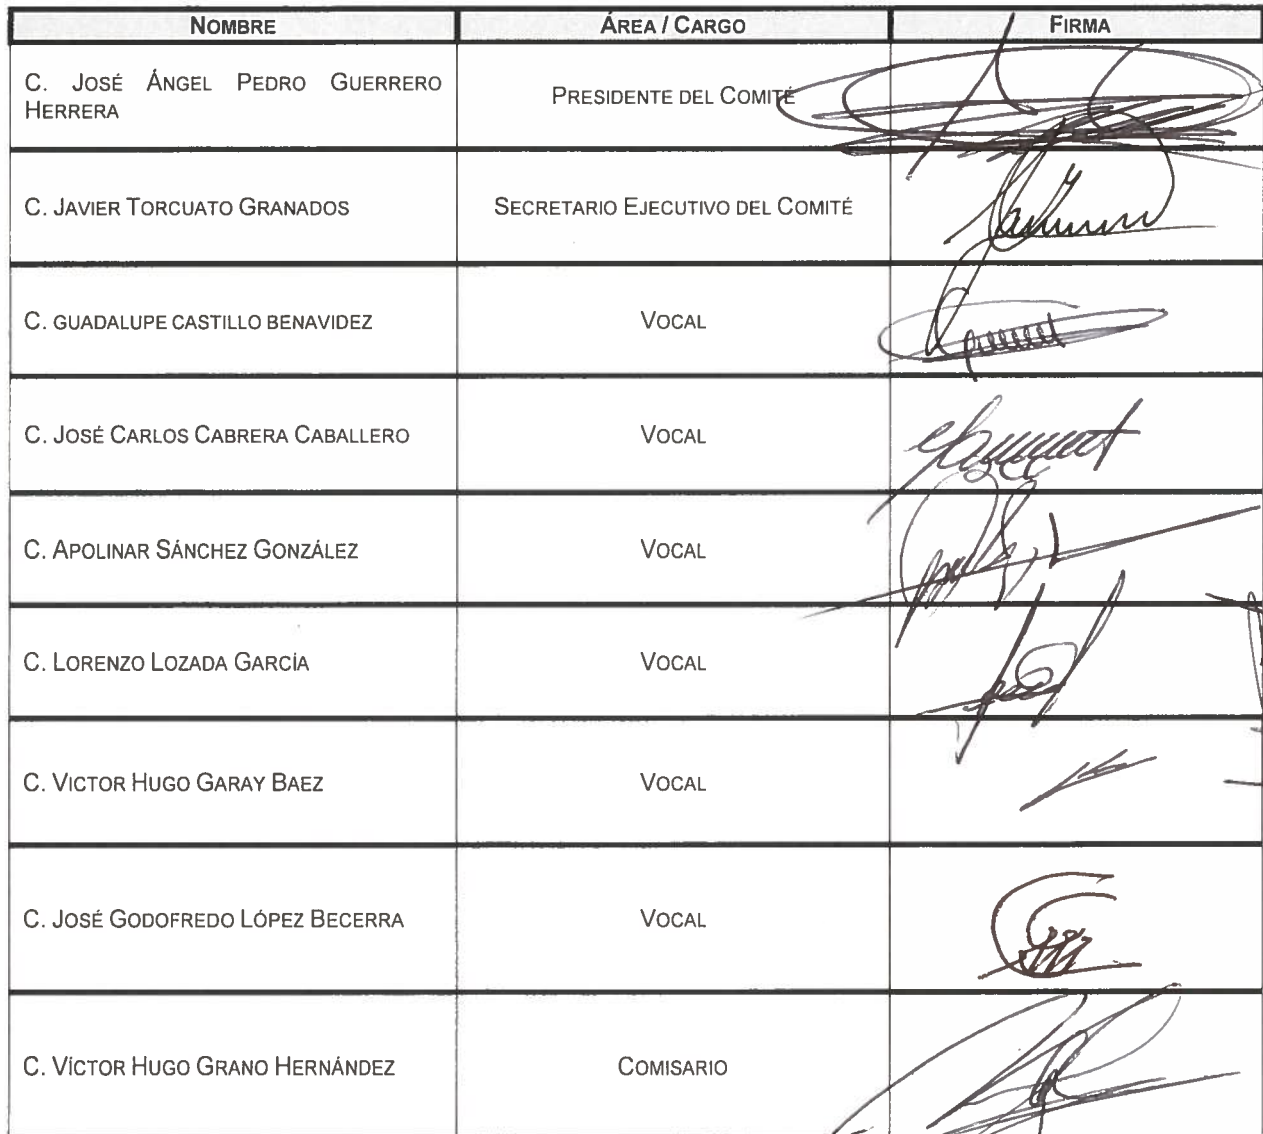 NOMBRE ÁREA / CARGO FIRMA
C. JOSÉ ÁNGEL PEDRO GUERRERO
HERRERA
PRESIDENTE DEL COMITÉ
C. JAVIER TORCUATO GRANADOS SECRETARIO EJECUTIVO DEL COMITÉ
C. GUADALUPE CASTILLO BENAVIDEZ VOCAL
C. JOSÉ CARLOS CABRERA CABALLERO VOCAL
C. APOLINAR SÁNCHEZ GONZÁLEZ VOCAL
C. LORENZO LOZADA GARCÍA VOCAL
C. VICTOR HUGO GARAY BAEZ VOCAL
C. JOSÉ GODOFREDO LÓPEZ BECERRA VOCAL
C. VÍCTOR HUGO GRANO HERNÁNDEZ COMISARIO